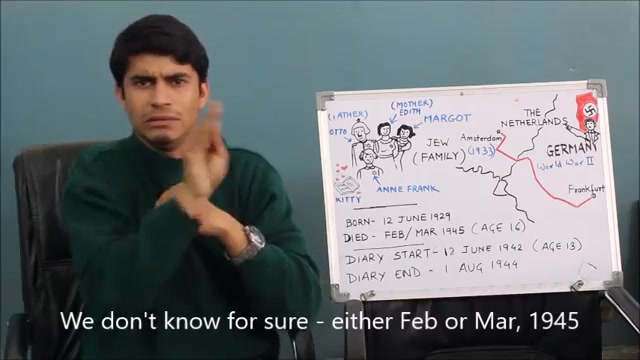 (FATHER)
OTTO
(MOTHER)
EDITH
MARGOT
JEW
(FAMILY)
ANNE FRANK
KITTY
THE
NETHERLANDS
Amsterdam
(1933)
GERMANY
World War II
Frankfurt
BORN- 12 JUNE 1929
DIED - FEB/MAR 1945 (AGE 16)
DIARY START- 12 JUNE 1942 (AGE 13)
DIARY END - 1 AUG 1944
We don't know for sure - either Feb or Mar, 1945